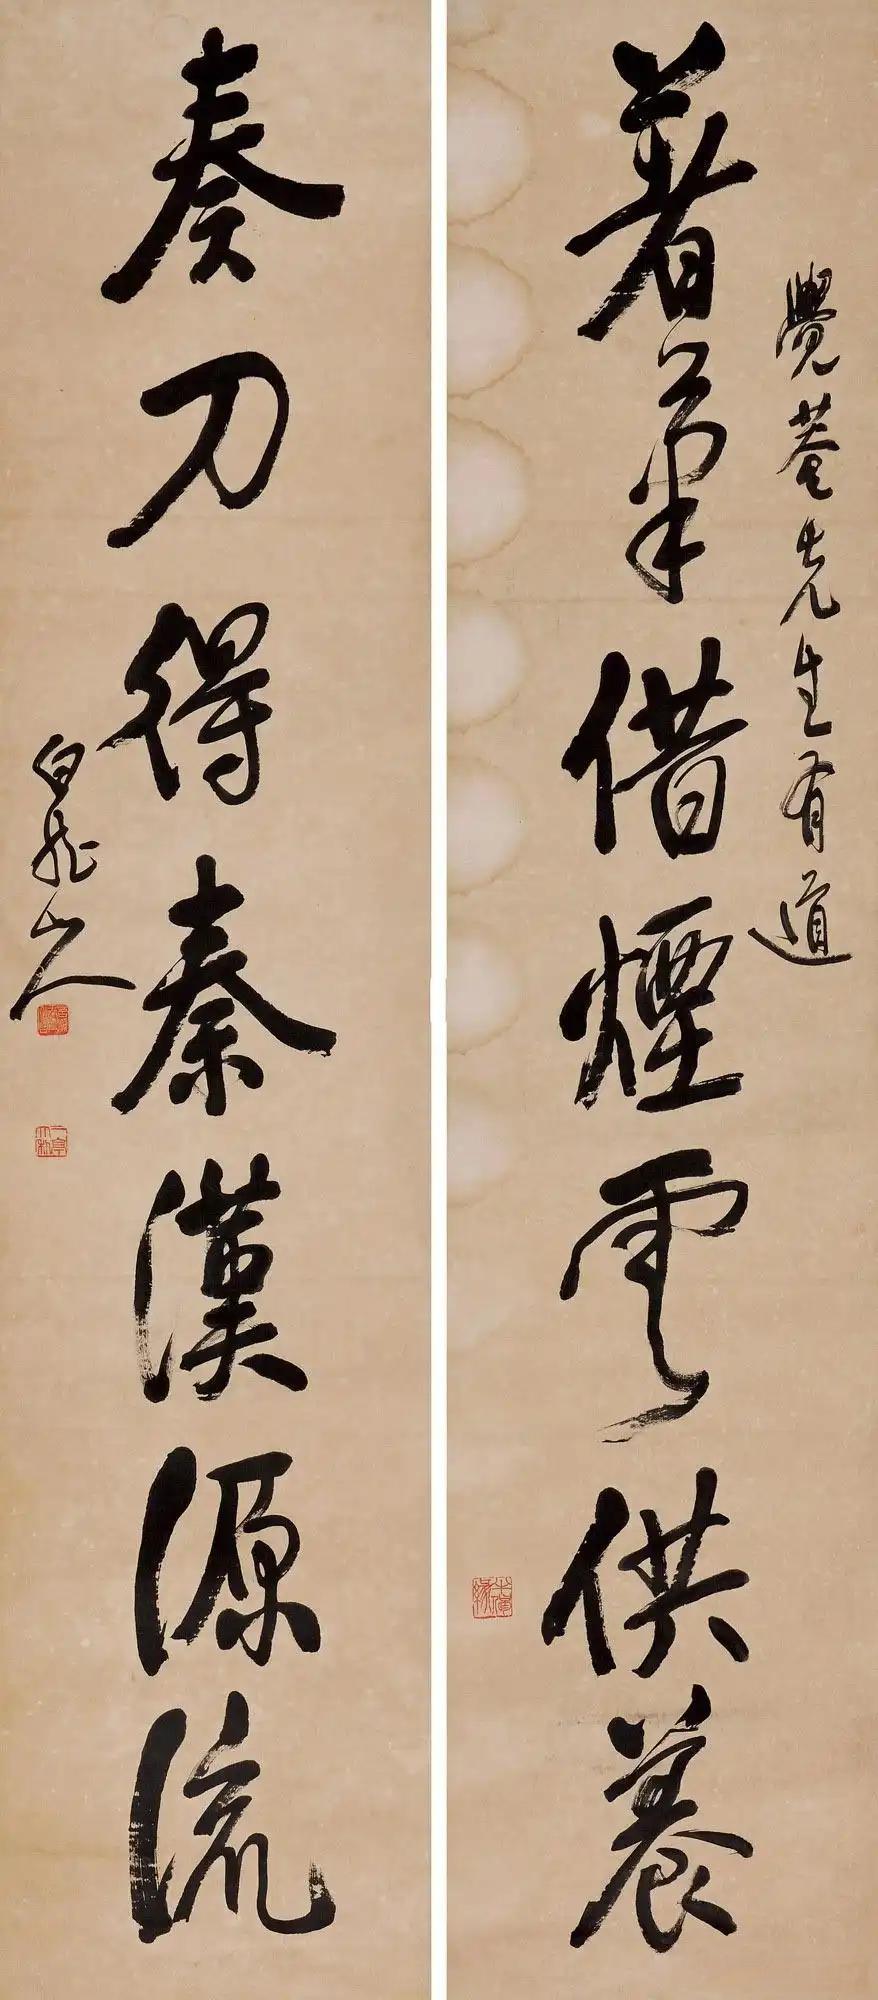 覺菴先生有道
著筆借煙雲供養
奏刀得秦漢源流
白龍山人